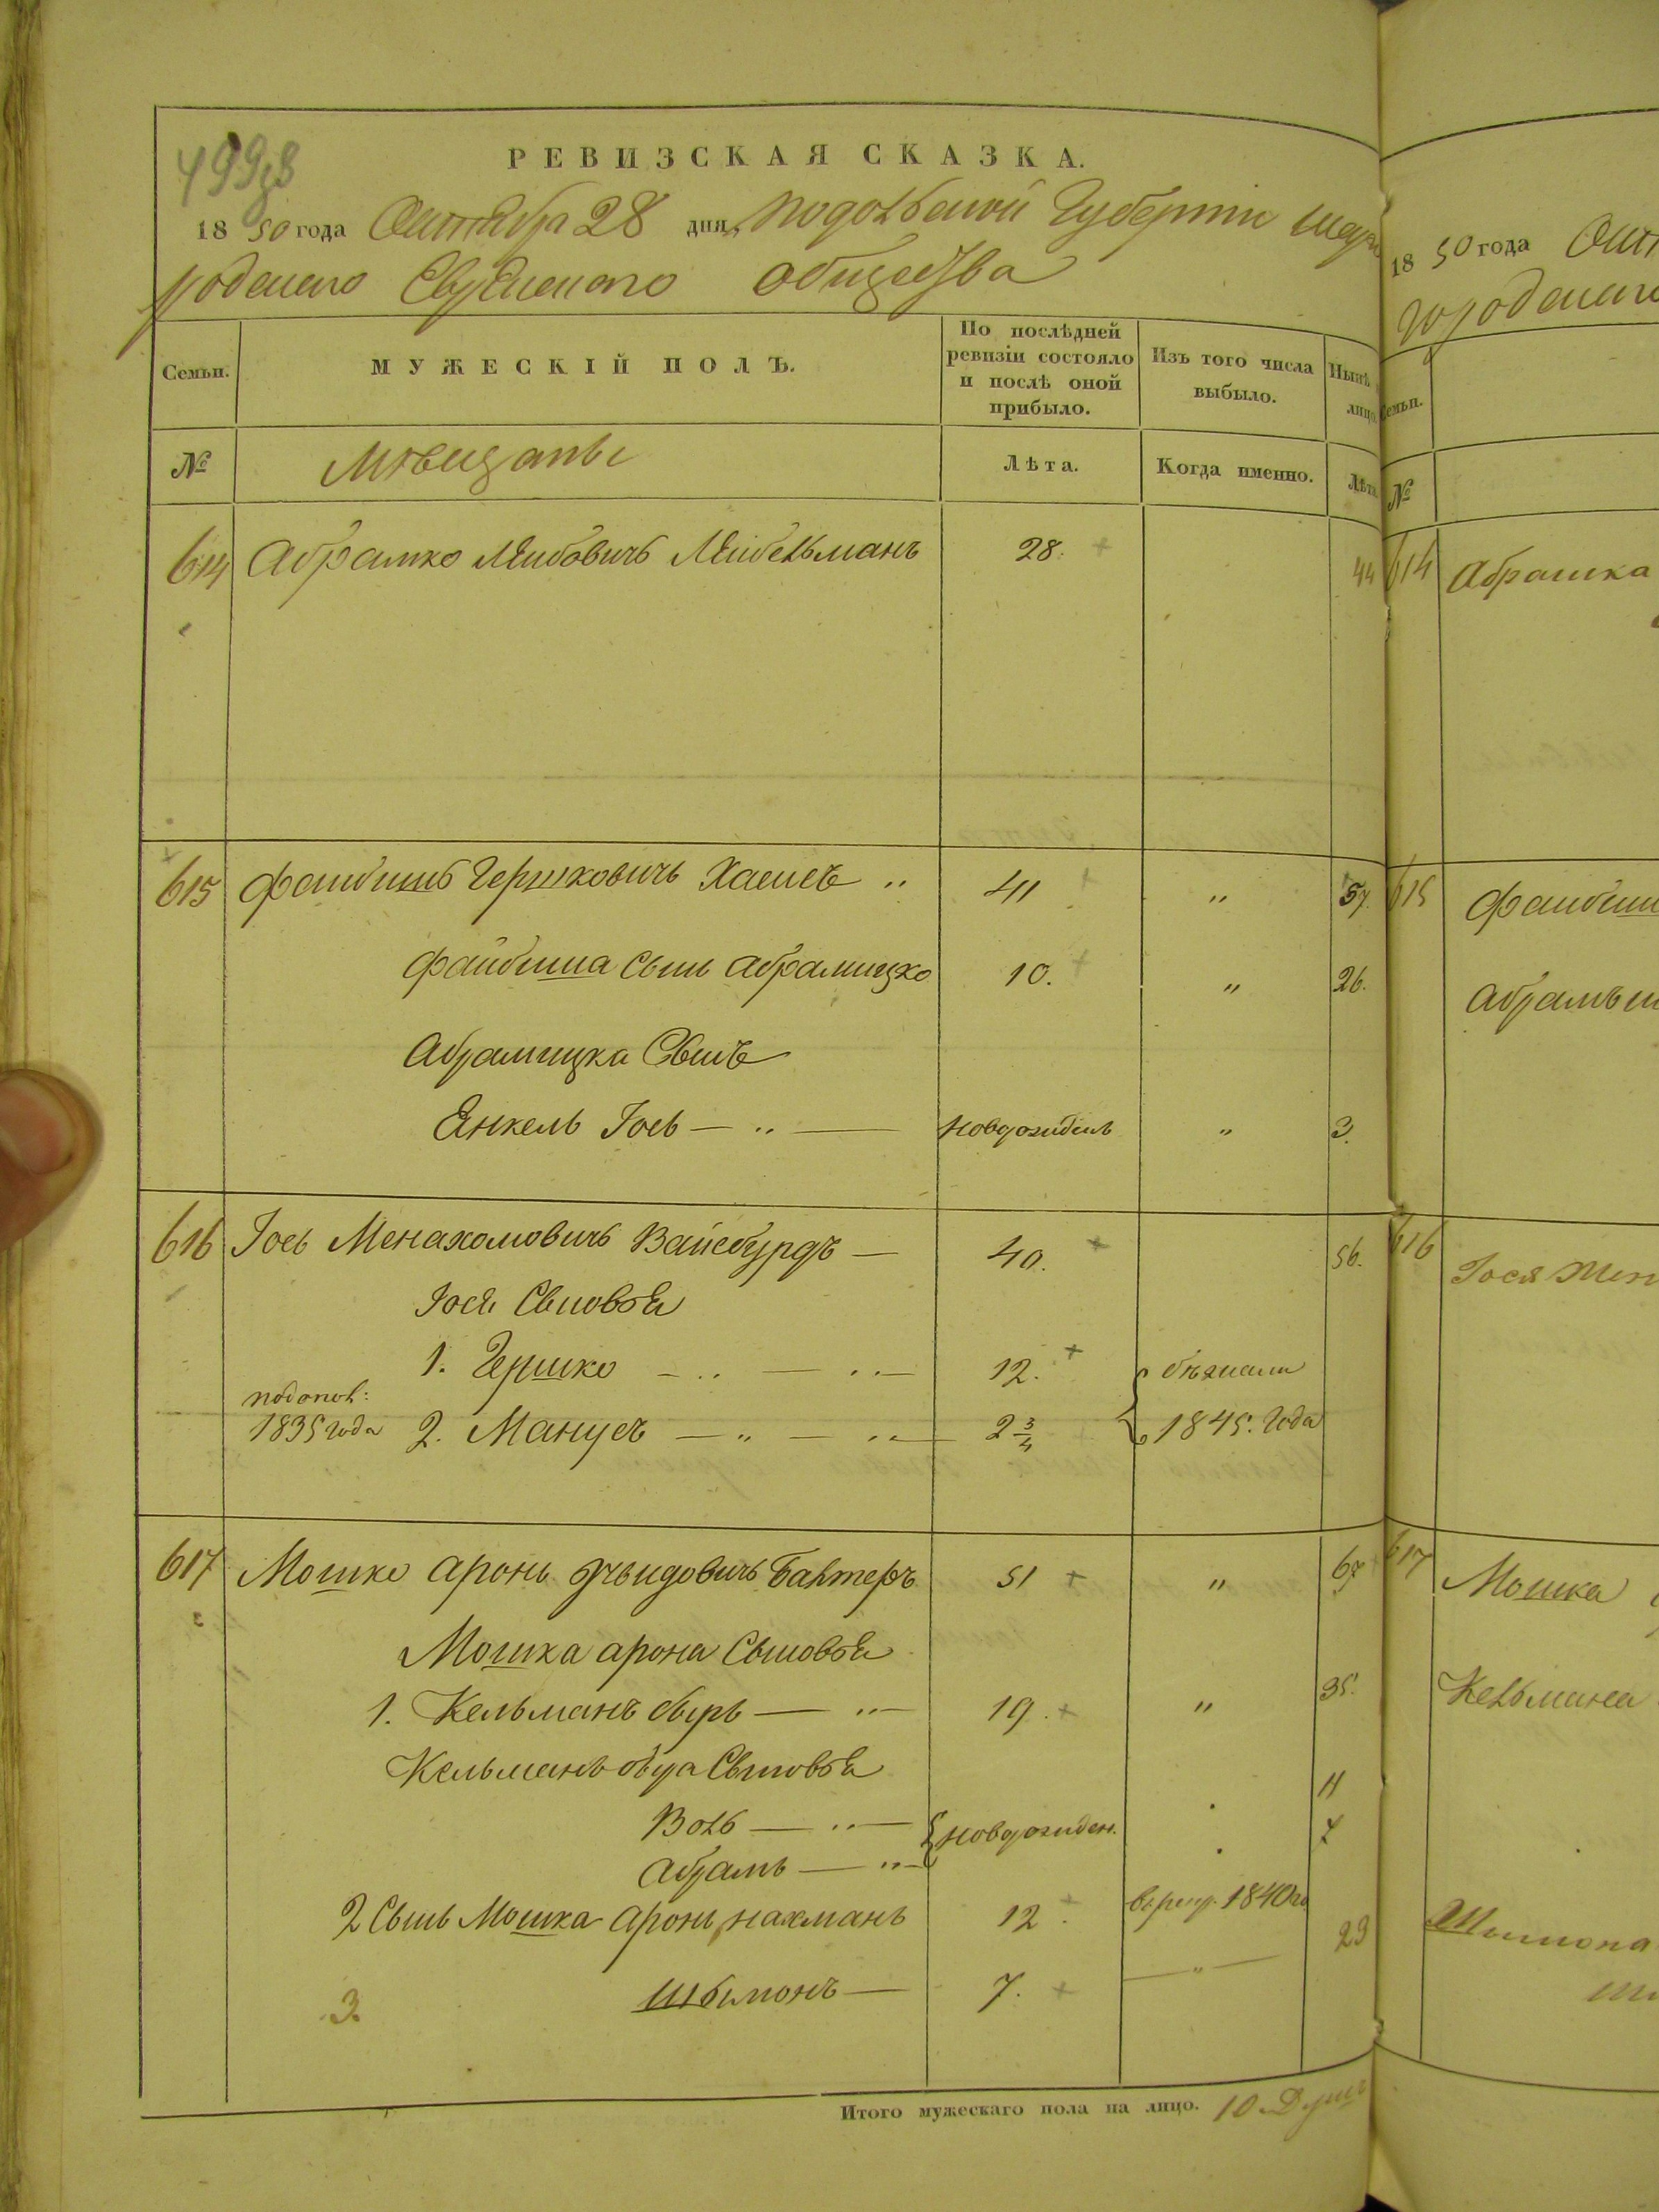 РЕВИЗСКАЯ СКАЗКА.
1850 года Октября 28 дня, Подольской Губернии Шаро
родского Еврейского общества
Семьи.
МУЖЕСКІЙ ПОЛЪ.
По послѣдней ревизіи состояло и послѣ оной прибыло.
Изъ того числа выбыло.
Нынѣ лицо
№
Мѣщаны
Лѣта.
Когда именно.
Лѣта
614 Абрамко Лейбовичъ Лейбельманъ 28. 44
615 Файбишъ Гершковичъ Хаепсъ „ 41 „ 57.
Файбиша Сынъ Абрамицко 10. „ 26.
Абрамицка Сынъ
Янкель Іось — „ — новорожденъ „ 3.
616 Іось Менахомовичъ Вайсбурдъ — 40. 56.
Іося Сыновья
1. Гершко — „ — „ — 12. бѣжали
1835 года 2. Манусъ — „ — „ — 2 3/4 1845. года
617 Мошко Аронъ Бахтеръ 51 „ 67
Мошка Арона Сыновья
1. Кельманъ — „ — 19. „ 35.
Кельмана Сыновья
Воль — „ — новорожден. 11
Абрамъ — „ — 7
2 Сынъ Мошка Арона, Нахманъ 12. 1840 го
3. Шлимонъ — 7. — „ — 23
Итого мужескаго пола на лицо. 10 Душъ
1850 года Окт
городского
Семьи.
№
614 Абрамка
615 Файбиш
616 Іося Мен
617 Мошка
Кельмана
Шлимона